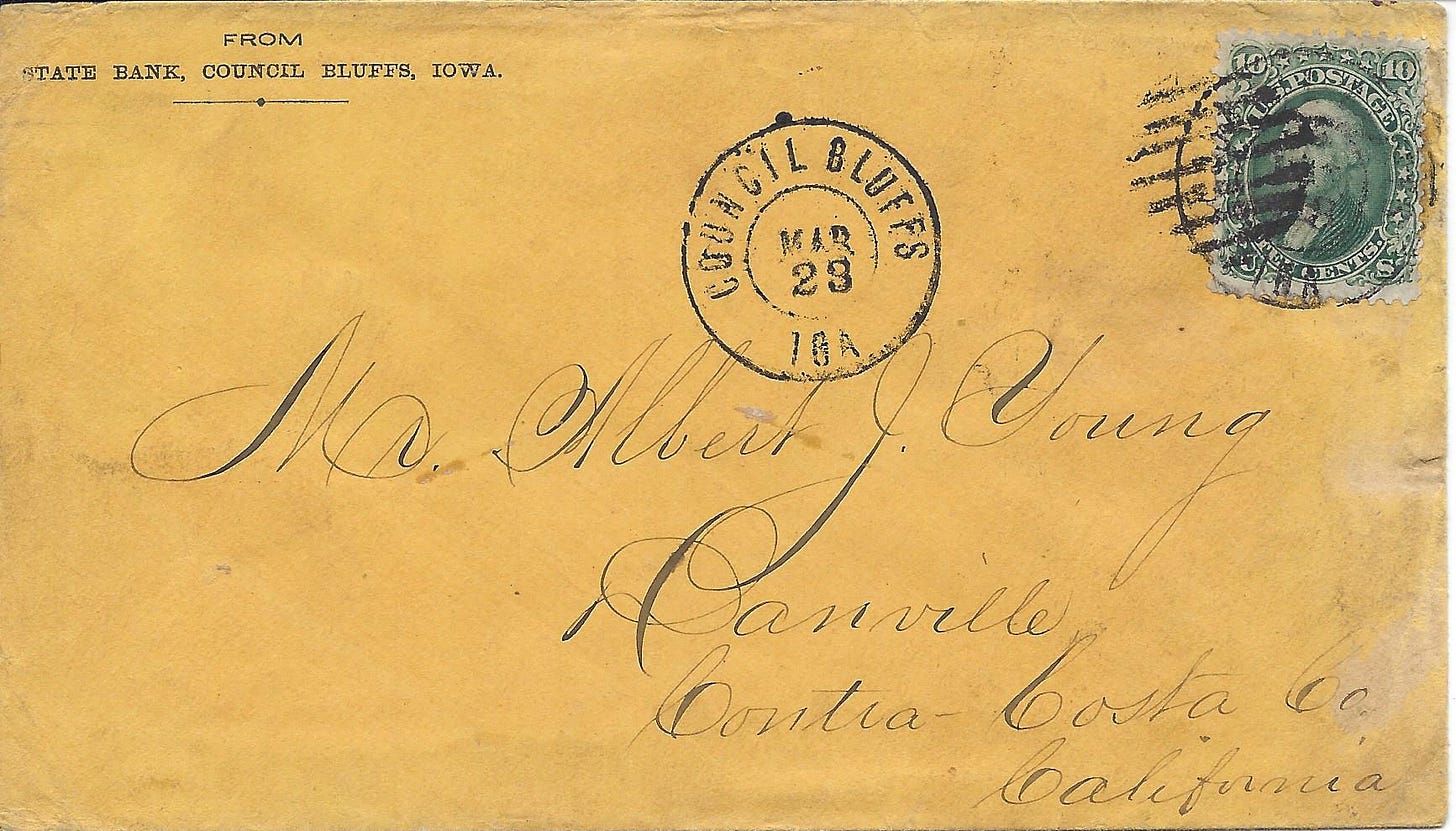 FROM
STATE BANK, COUNCIL BLUFFS, IOWA.
10 10
U.S. POSTAGE
TEN CENTS.
U S
COUNCIL BLUFFS
MAR
23
IOA
Mr. Albert J. Young
Danville
Contra-Costa Co
California